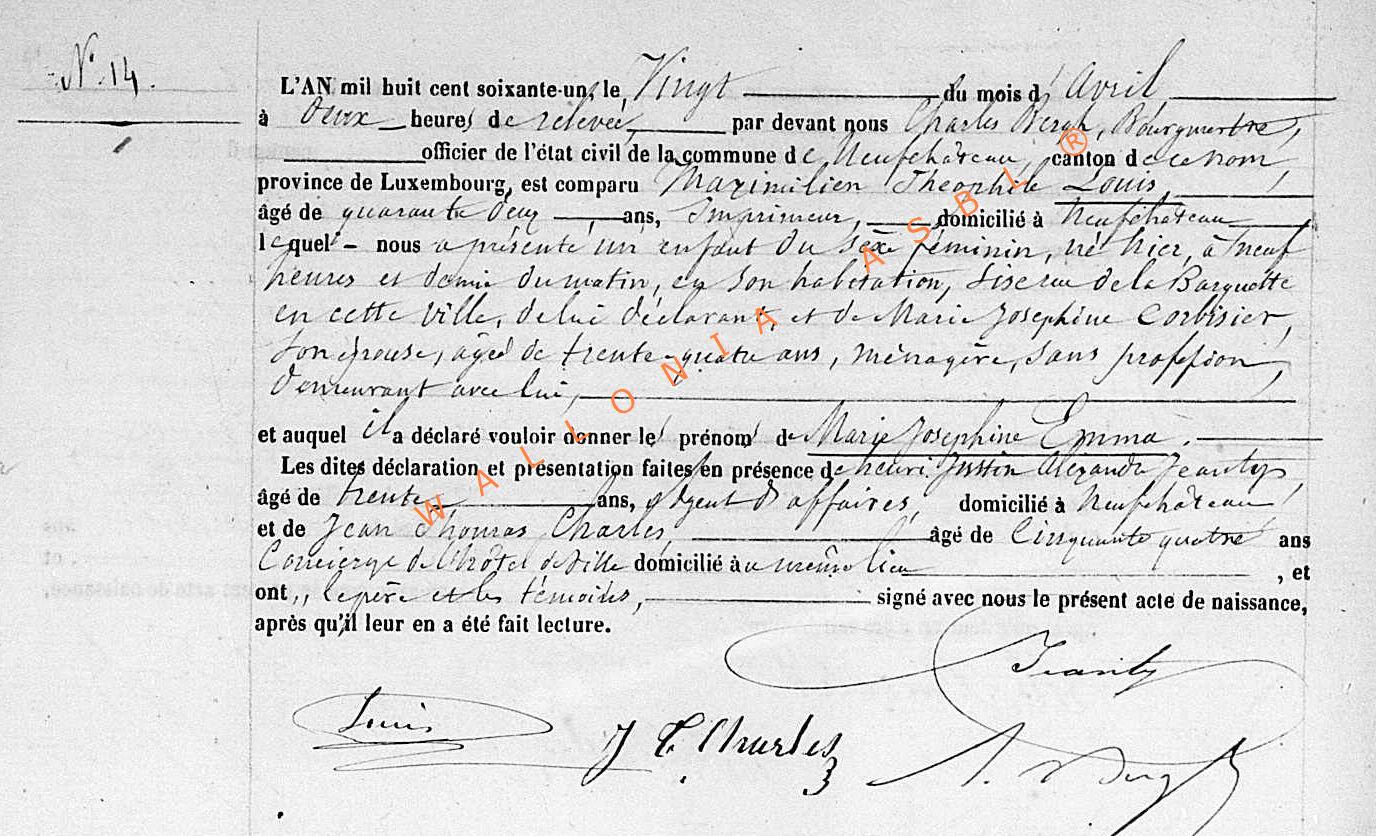 N° 14.
L'AN mil huit cent soixante-un, le Vingt du mois d'Avril,
à deux heures de relevée, par devant nous Charles Bergh, Bourgmestre,
officier de l'état civil de la commune de Neufchâteau, canton de ce nom
province de Luxembourg, est comparu Maximilien Théophile Louis,
âgé de quarante deux ans, Imprimeur, domicilié à Neufchâteau
lequel nous a présenté un enfant du sexe féminin, né hier, à neuf
heures et demie du matin, en son habitation, sise rue de la Barquette
en cette ville, de lui déclarant, et de Marie Josephine Corbisier,
son épouse, âgée de trente-quatre ans, ménagère, sans profession,
demeurant avec lui,
et auquel il a déclaré vouloir donner les prénoms de Marie Josephine Emma.
Les dites déclaration et présentation faites en présence de henri Justin Alexandre Jeanty,
âgé de trente ans, agent d'affaires, domicilié à Neufchâteau
et de Jean Thomas Charles, âgé de Cinquante quatre ans
Concierge de l'hôtel de Ville domicilié au même lieu, et
ont, le père et les témoins, signé avec nous le présent acte de naissance,
après qu'il leur en a été fait lecture.
Jeanty
Louis
J T Charles
Bergh
WALLONIA ASBL ®